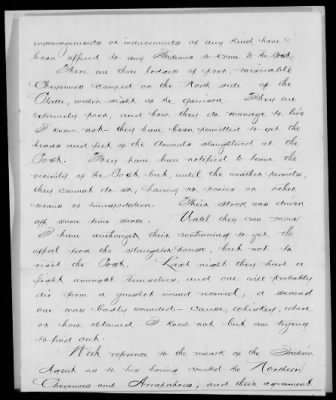 encouragements or inducements of any kind have
been offered to any Indians to come to the Post.
There are three lodges of poor, miserable
Cheyennes camped on the North side of the
Platte, within sight of the Garrison. They are
extremely poor, and how they do manage to live
I know not. They have been permitted to get the
heads and feet of the animals slaughtered at the
Post. They have been notified to leave the
vicinity of the Post but, until the weather permits,
they cannot do so, having no ponies or other
means of transportation. Their stock was driven
off some time since. Until they can move
I have authorized their continuing to get the
offal from the slaughter house, but not to
visit the Post. Last night they had a
fight amongst themselves, and one will probably
die from a gunshot wound received, a second
one was badly wounded - cause, whiskey, where
or how obtained I know not but am trying
to find out.
With reference to the remark of the Indian
Agent as to his having counted the Northern
Cheyennes and Arrapahoes, and their agreement